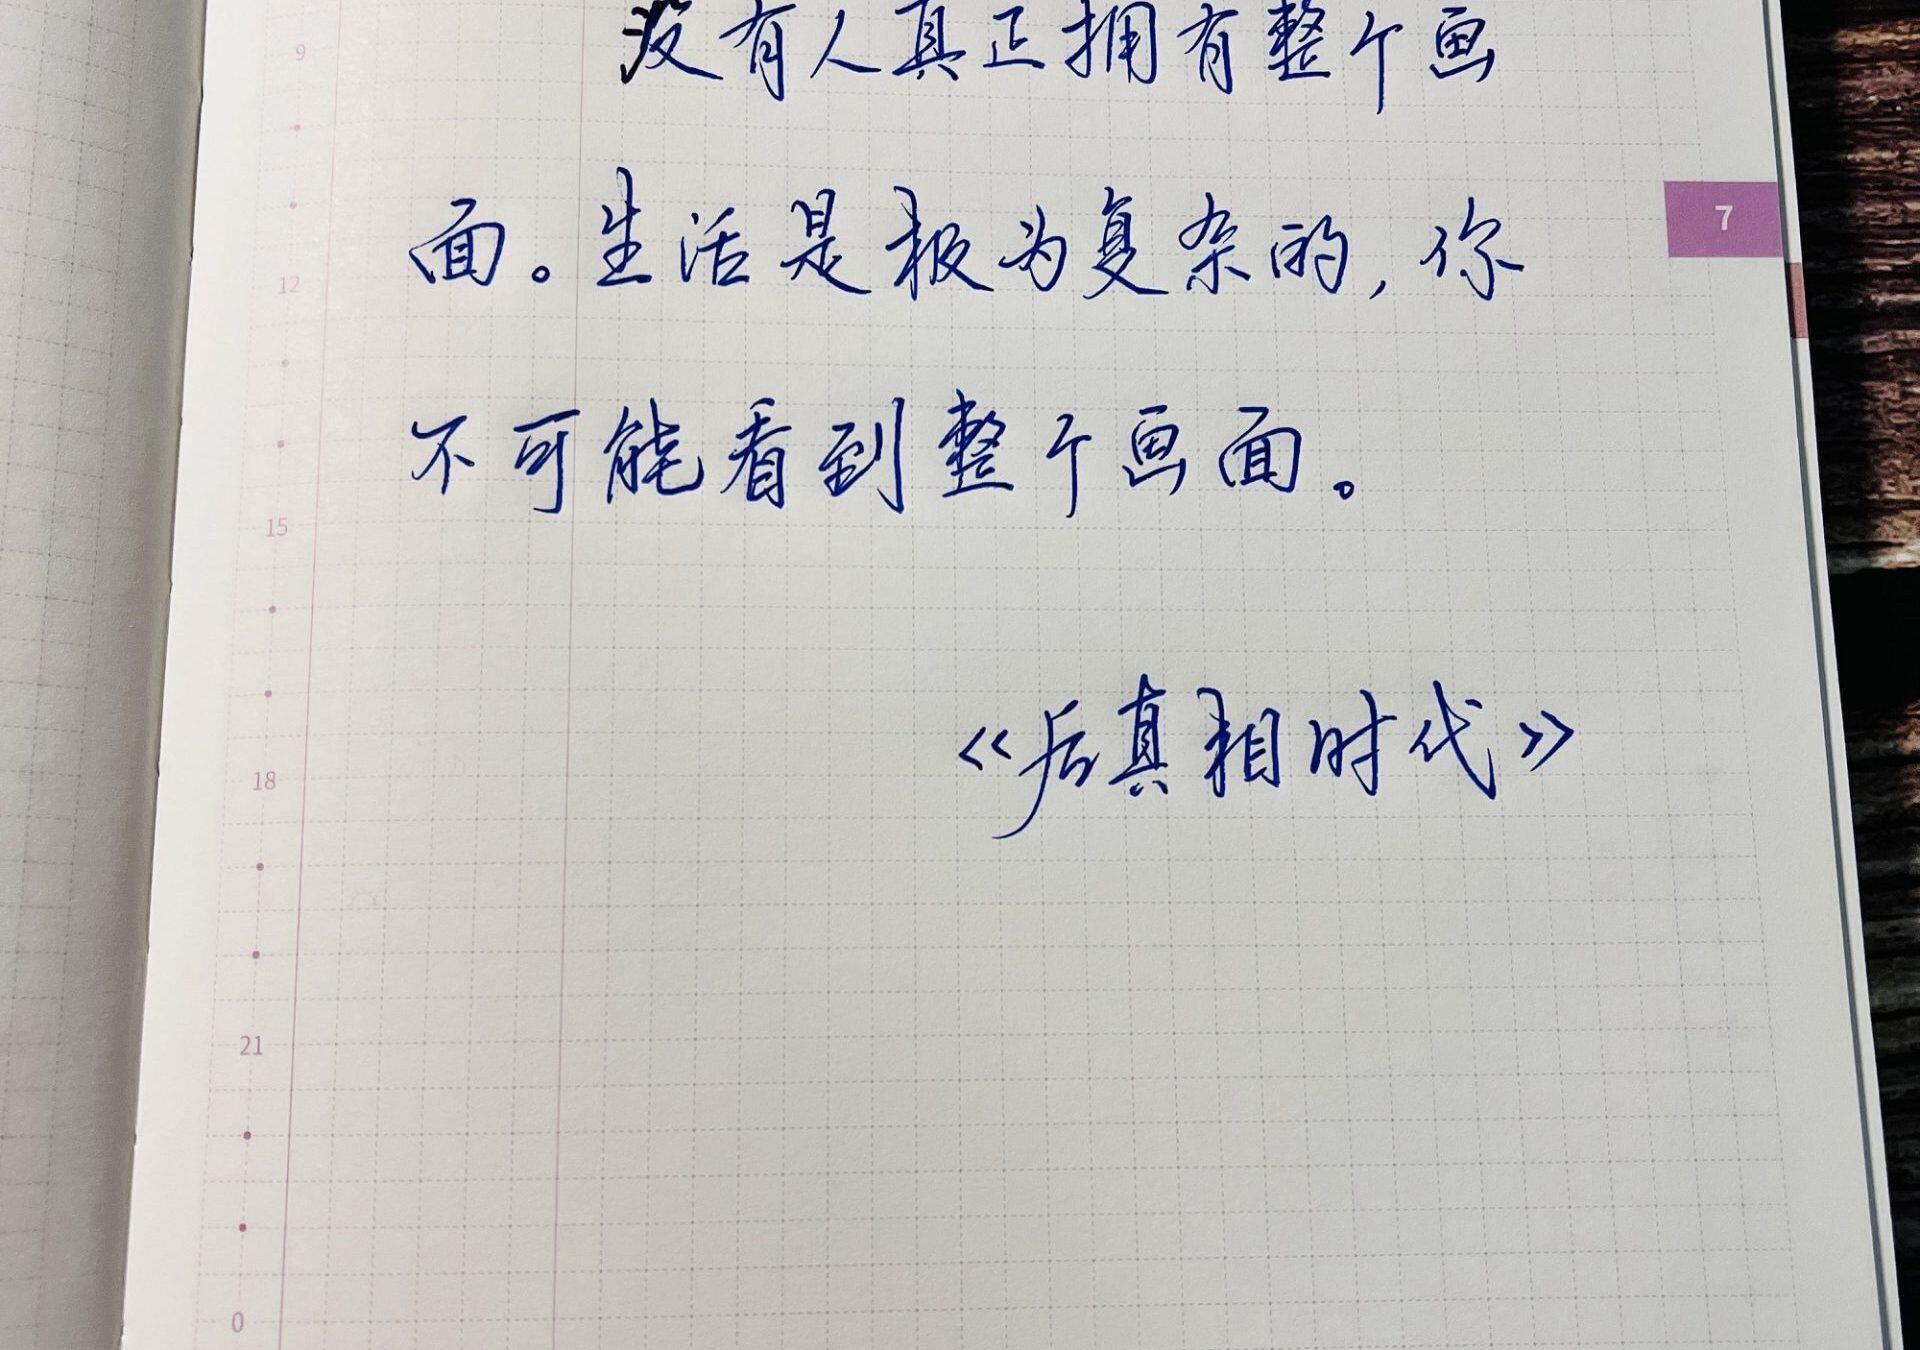 9
没有人真正拥有整个画
7
面。生活是极为复杂的，你
12
不可能看到整个画面。
15
《后真相时代》
18
21
0